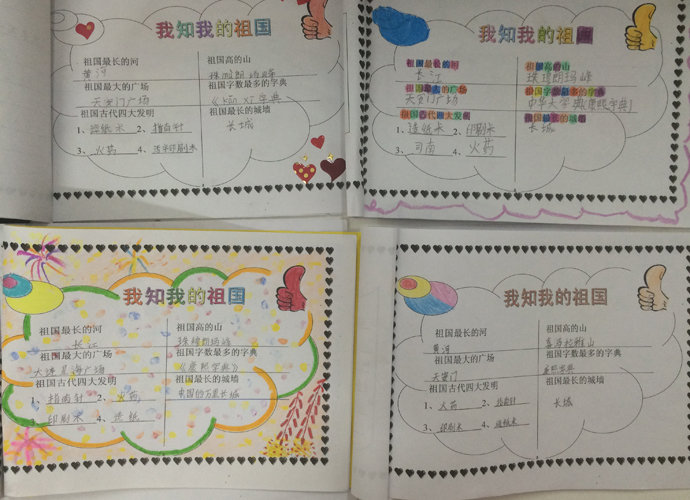 我知我的祖国
祖国最长的河
祖国高的山
黄河
祖国最大的广场
祖国字数最多的字典
天安门广场
祖国古代四大发明
祖国最长的城墙
1、造纸术 2、指南针
长城
3、火药 4、活字印刷术
我知我的祖国
祖国最长的河
祖国高的山
长江
珠穆朗玛峰
祖国最大的广场
祖国字数最多的字典
天安门广场
祖国古代四大发明
祖国最长的城墙
1、造纸术 2、印刷术
长城
3、司南 4、火药
我知我的祖国
祖国最长的河
祖国高的山
长江
珠穆朗玛峰
祖国最大的广场
祖国字数最多的字典
大连星海广场
《康熙字典》
祖国古代四大发明
祖国最长的城墙
1、指南针 2、火药
中国的万里长城
3、印刷术 4、造纸
我知我的祖国
祖国最长的河
祖国高的山
黄河
喜马拉雅山
祖国最大的广场
祖国字数最多的字典
天安门
康熙字典
祖国古代四大发明
祖国最长的城墙
1、火药 2、指南针
长城
3、印刷术 4、造纸术